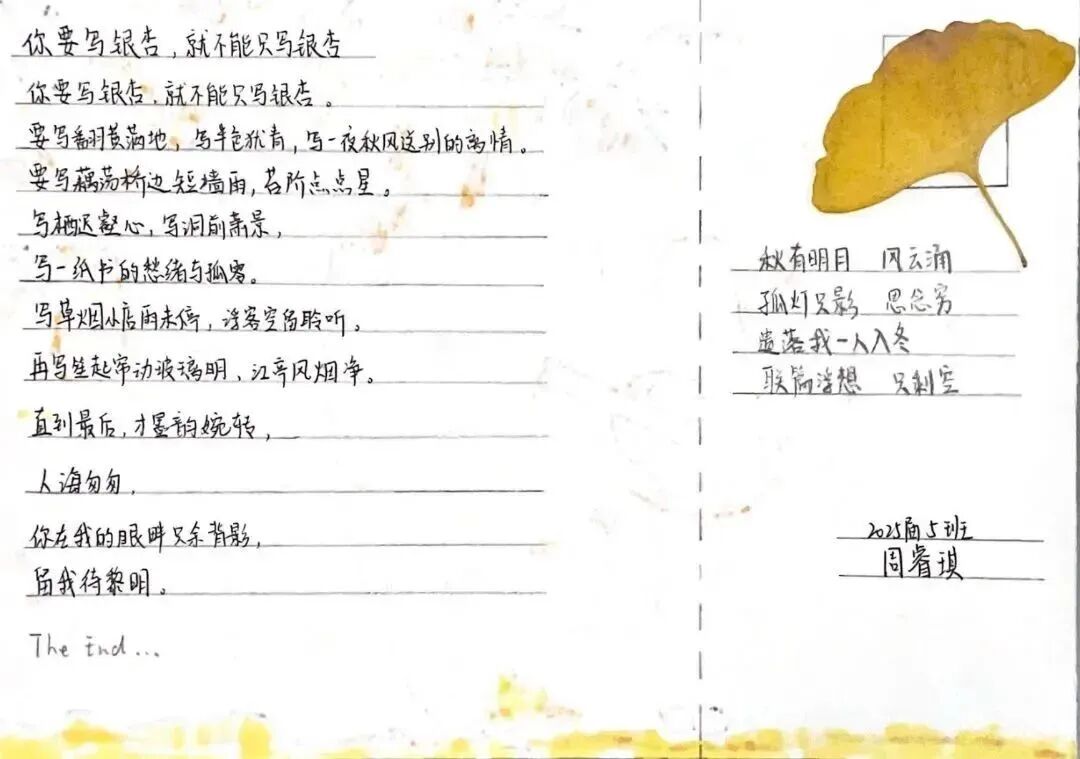 你要写银杏，就不能只写银杏
你要写银杏，就不能只写银杏。
要写翻黄满地，写半色犹青，写一夜秋风送别的离情。
要写藕荡桥边短墙雨，苔阶点点星。
写栖迟凝心，写泪前亲景，
写一纸书的愁绪与孤零。
写草烟小店雨未停，浮客空留聆听。
再写笙起帘动玻璃明，江亭风烟净。
直到最后，才墨韵婉转，
人海匆匆，
你在我的眼畔只余背影，
留我待黎明。
The End...
秋有明月 风云涌
孤灯只影 思念穷
遗落我一人入冬
联篇浮想 只剩空
2025届5班
周睿琪